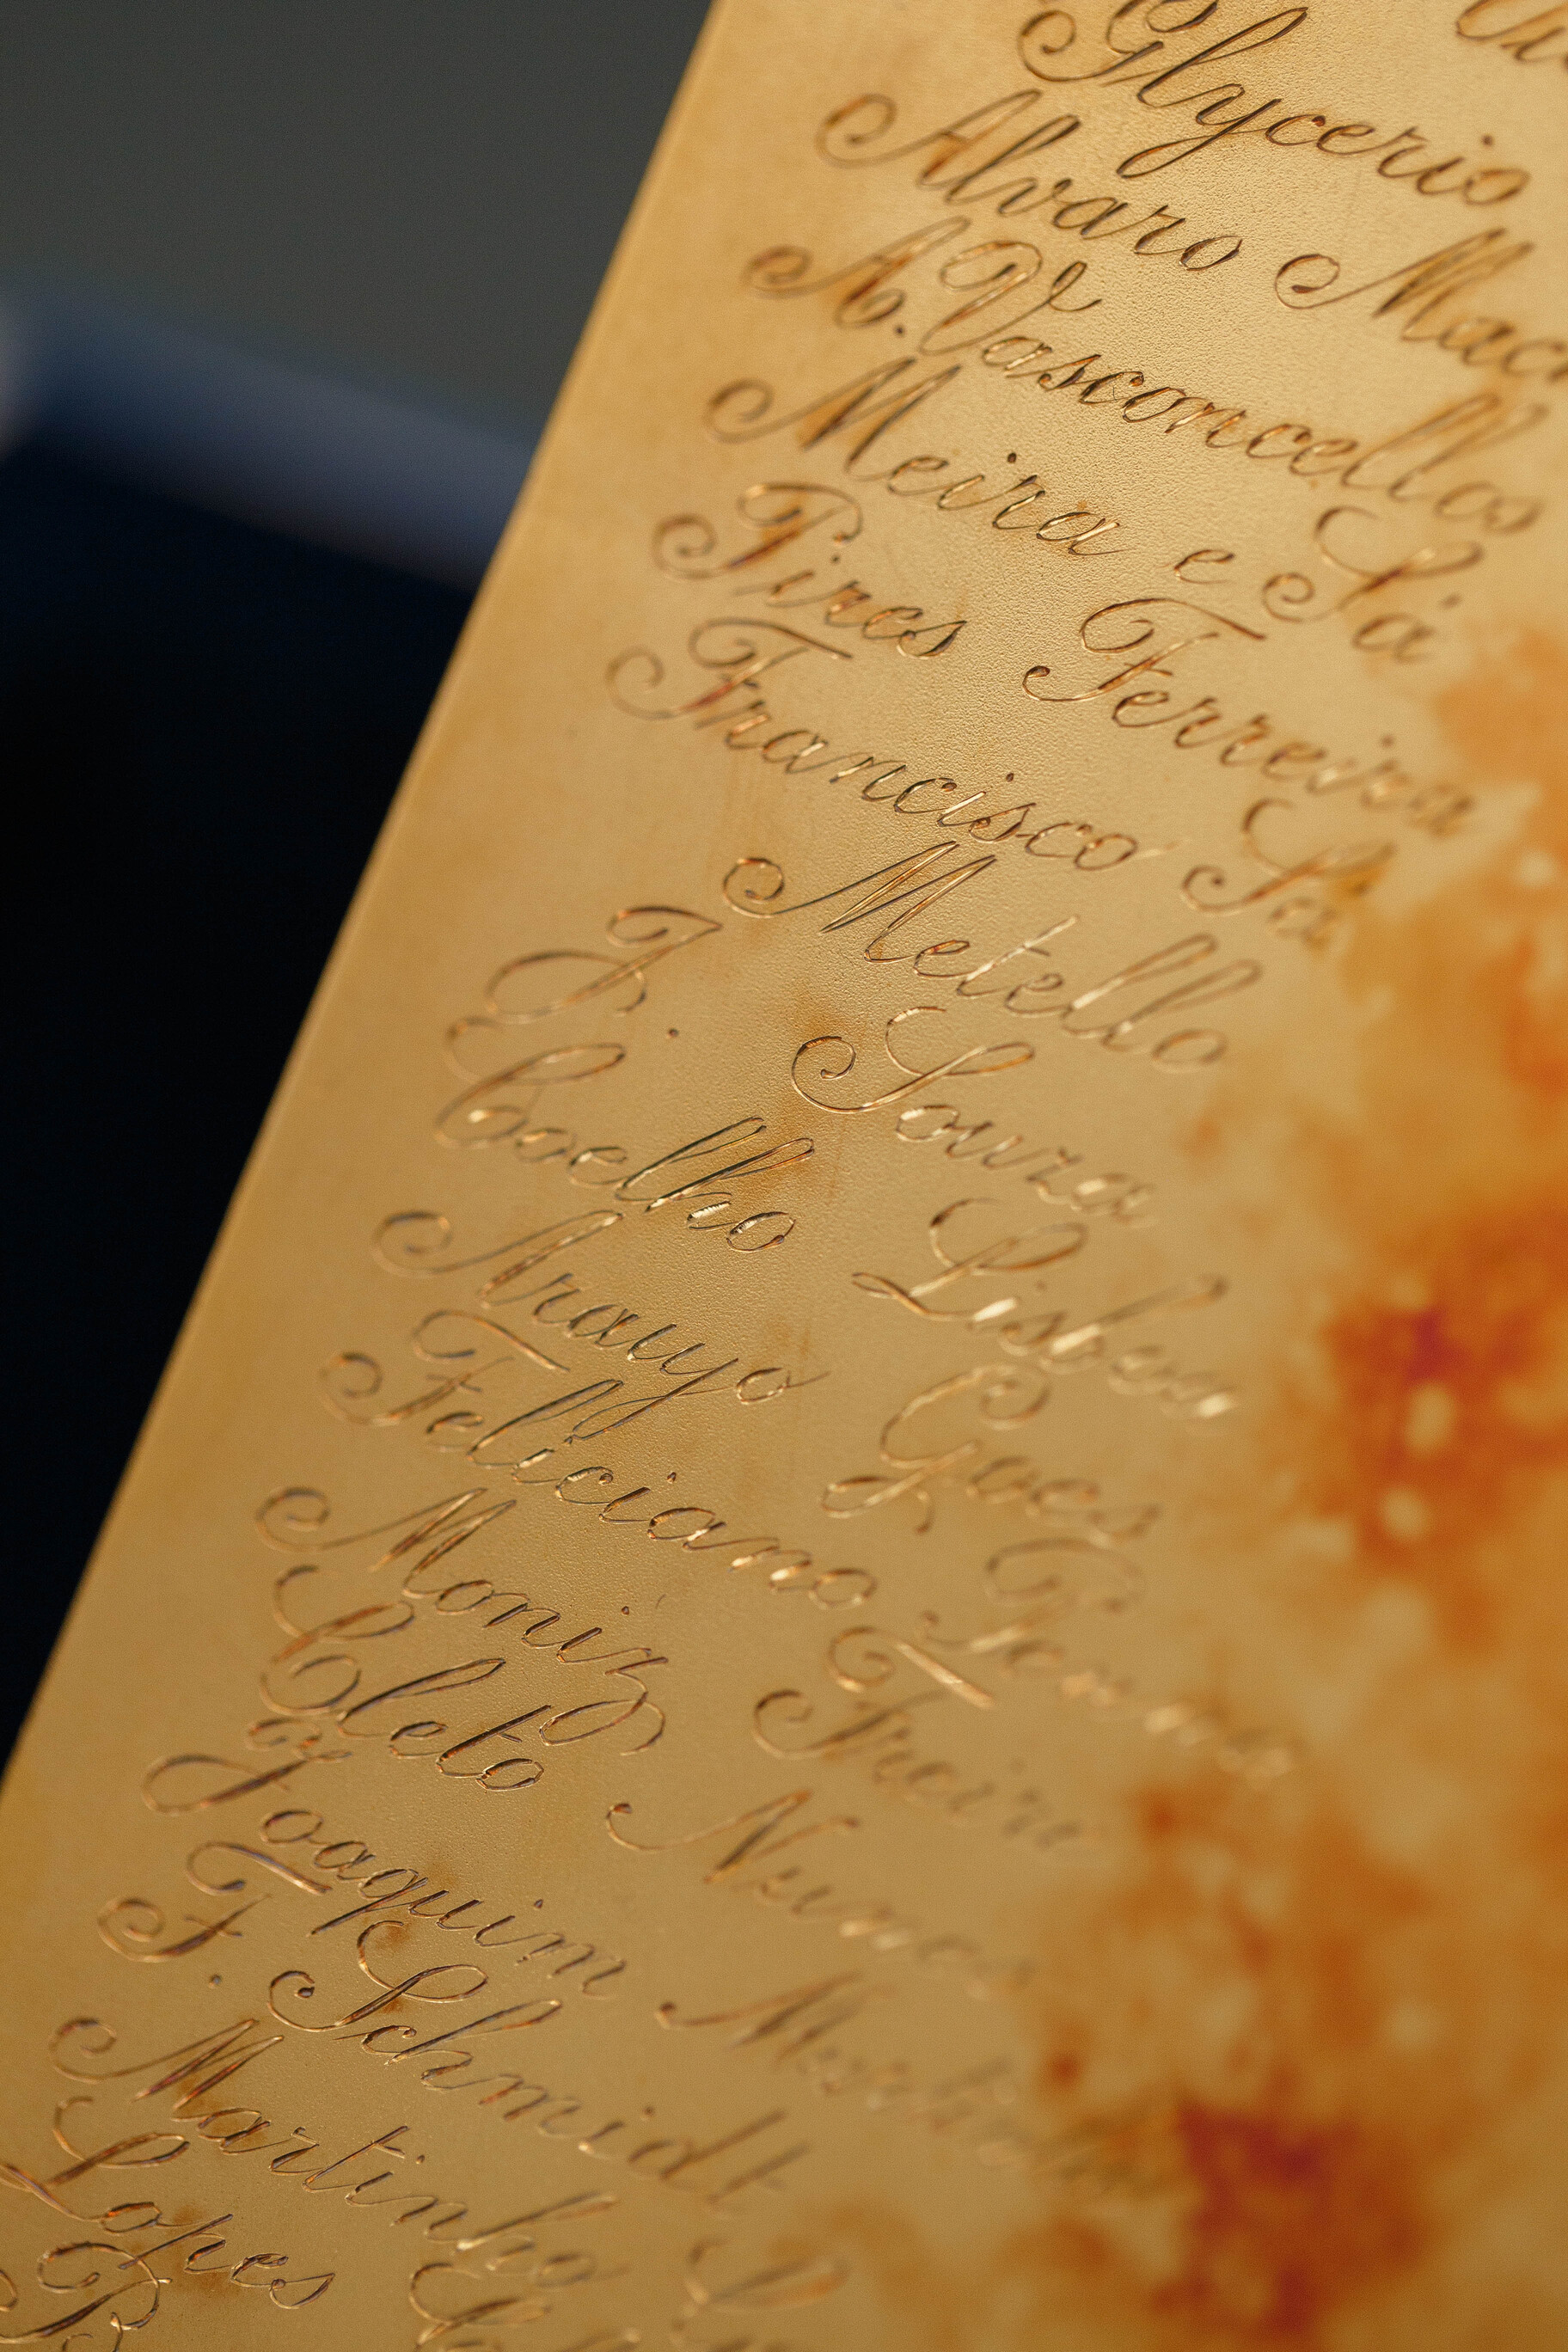 Glycerio
Alvaro Mac
A. Vasconcellos
Meira e Sá
Pires Ferreira
Francisco Sá
Metello
J. Souza
Coelho Lisboa
Arauyo Goes
Feliciano Penna
Moniz Freire
Cleto Nunes
Joaquim
F. Schmidt
Martinho
Lopes